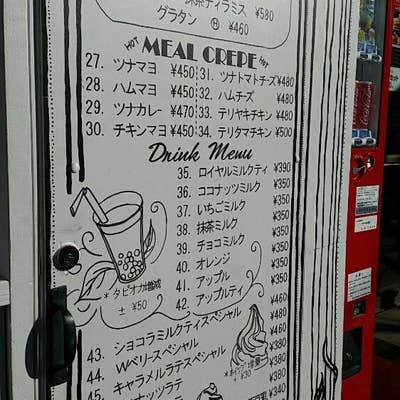 抹茶ティラミス ¥580
グラタン Ⓗ ¥460
HOT MEAL CREPE HOT
27. ツナマヨ ¥450 31. ツナトマトチーズ ¥480
28. ハムマヨ ¥450 32. ハムチーズ ¥480
29. ツナカレー ¥470 33. テリヤキチキン ¥480
30. チキンマヨ ¥450 34. テリタマチキン ¥500
Drink Menu
35. ロイヤルミルクティ ¥390
36. ココナッツミルク ¥350
37. いちごミルク ¥350
38. 抹茶ミルク ¥350
39. チョコミルク ¥350
40. オレンジ ¥350
41. アップル ¥350
42. アップルティ ¥350
*タピオカ増減
± ¥50
43. ショコラミルクティスペシャル ¥460
44. Wベリースペシャル ¥380
45. キャラメルラテスペシャル
*ホイップ増量
+¥30
¥380
¥380
¥340